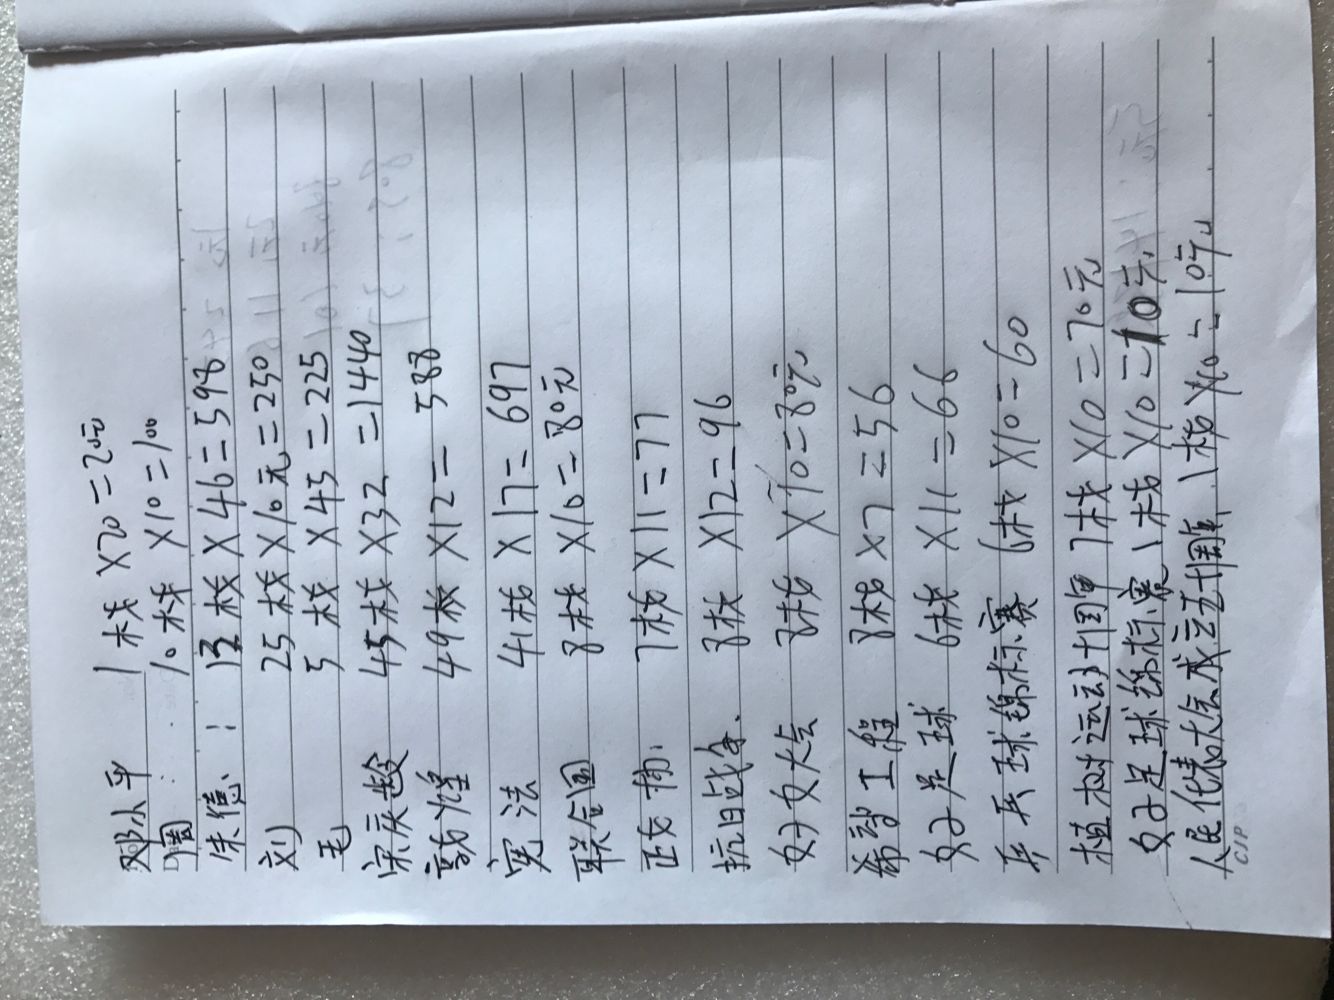 邓小平 1枚 X20=20元
周 10枚 X10=100
朱德: 13枚 X 46=598
刘 25枚 X10元=250
毛 5枚 X45=225
宋庆龄 45枚 X32=1440
敦煌 49枚 X12=588
宪法 41枚 X17=697
联合国 8枚 X10=80元
政协 7枚 X11=77
抗日战争 8枚 X12=96
妇女大会 8枚 X10=80元
希望工程 8枚 X7=56
女子足球 6枚 X11=66
乒乓球锦标赛 6枚 X10=60
植树运动十周年 7枚 X10=70元
女子足球锦标赛 1枚 X10=10元
人民代表大会成立五十周年 1枚 X10=10元